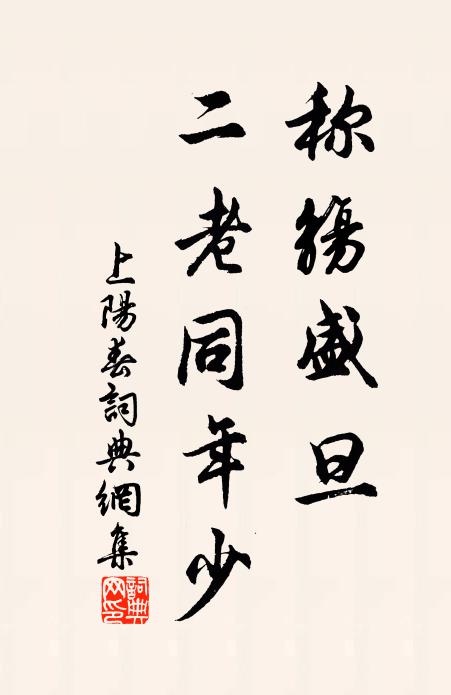 称觞盛旦
二老同年少
上陽春詞典網集
詞典网印